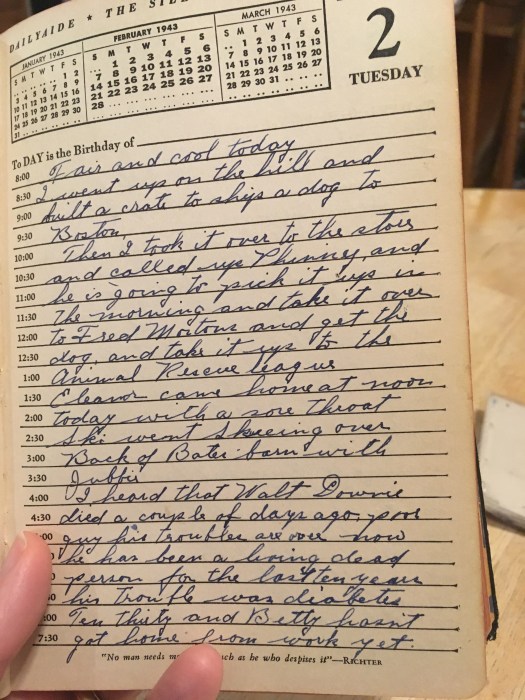 DAILYAIDE ★ THE
JANUARY 1943
S M T W T F S
.. .. .. .. .. 1 2
3 4 5 6 7 8 9
10 11 12 13 14 15 16
17 18 19 20 21 22 23
24 25 26 27 28 29 30
31 .. .. .. .. .. ..
FEBRUARY 1943
S M T W T F S
.. 1 2 3 4 5 6
7 8 9 10 11 12 13
14 15 16 17 18 19 20
21 22 23 24 25 26 27
28 .. .. .. .. .. ..
MARCH 1943
S M T W T F S
.. 1 2 3 4 5 6
7 8 9 10 11 12 13
14 15 16 17 18 19 20
21 22 23 24 25 26 27
28 29 30 31 .. .. ..
2
TUESDAY
To DAY is the Birthday of
8:00 Fair and cool today
8:30 I went up on the hill and
9:00 built a crate to ship a dog to
9:30 Boston,
10:00 Then I took it over to the store
10:30 and called up Phinney, and
11:00 he is going to pick it up in
11:30 the morning and take it over
12:00 to Fred Mortons and get the
12:30 dog, and take it up to the
1:00 Animal Rescue league
1:30 Eleanor came home at noon
2:00 today with a sore throat
2:30 Ski went skieing over
3:00 Back of Bates barn with
3:30
4:00 I heard that Walt Downie
4:30 died a couple of days ago, poor
:00 guy his troubles are over now
he has been a living dead
person for the last ten years
his trouble was diabetes
:00 Ten thirty and Betty hasnt
7:30 got home from work yet.
"No man needs much as he who despises it"—RICHTER